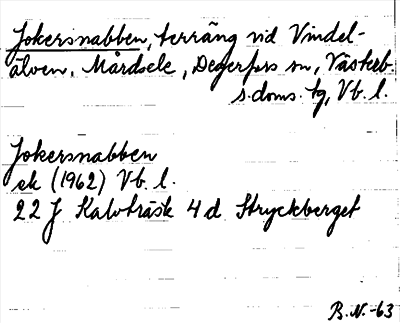 Jokersnabben, terräng vid Vindel-
älven, Mårdsele, Degerfors sn, Västerb.
s. doms. tg, Vb. l.
Jokersnabben
ek (1962) Vb. l.
22 J Kalvträsk 4 d Stryckberget
B.N.-63